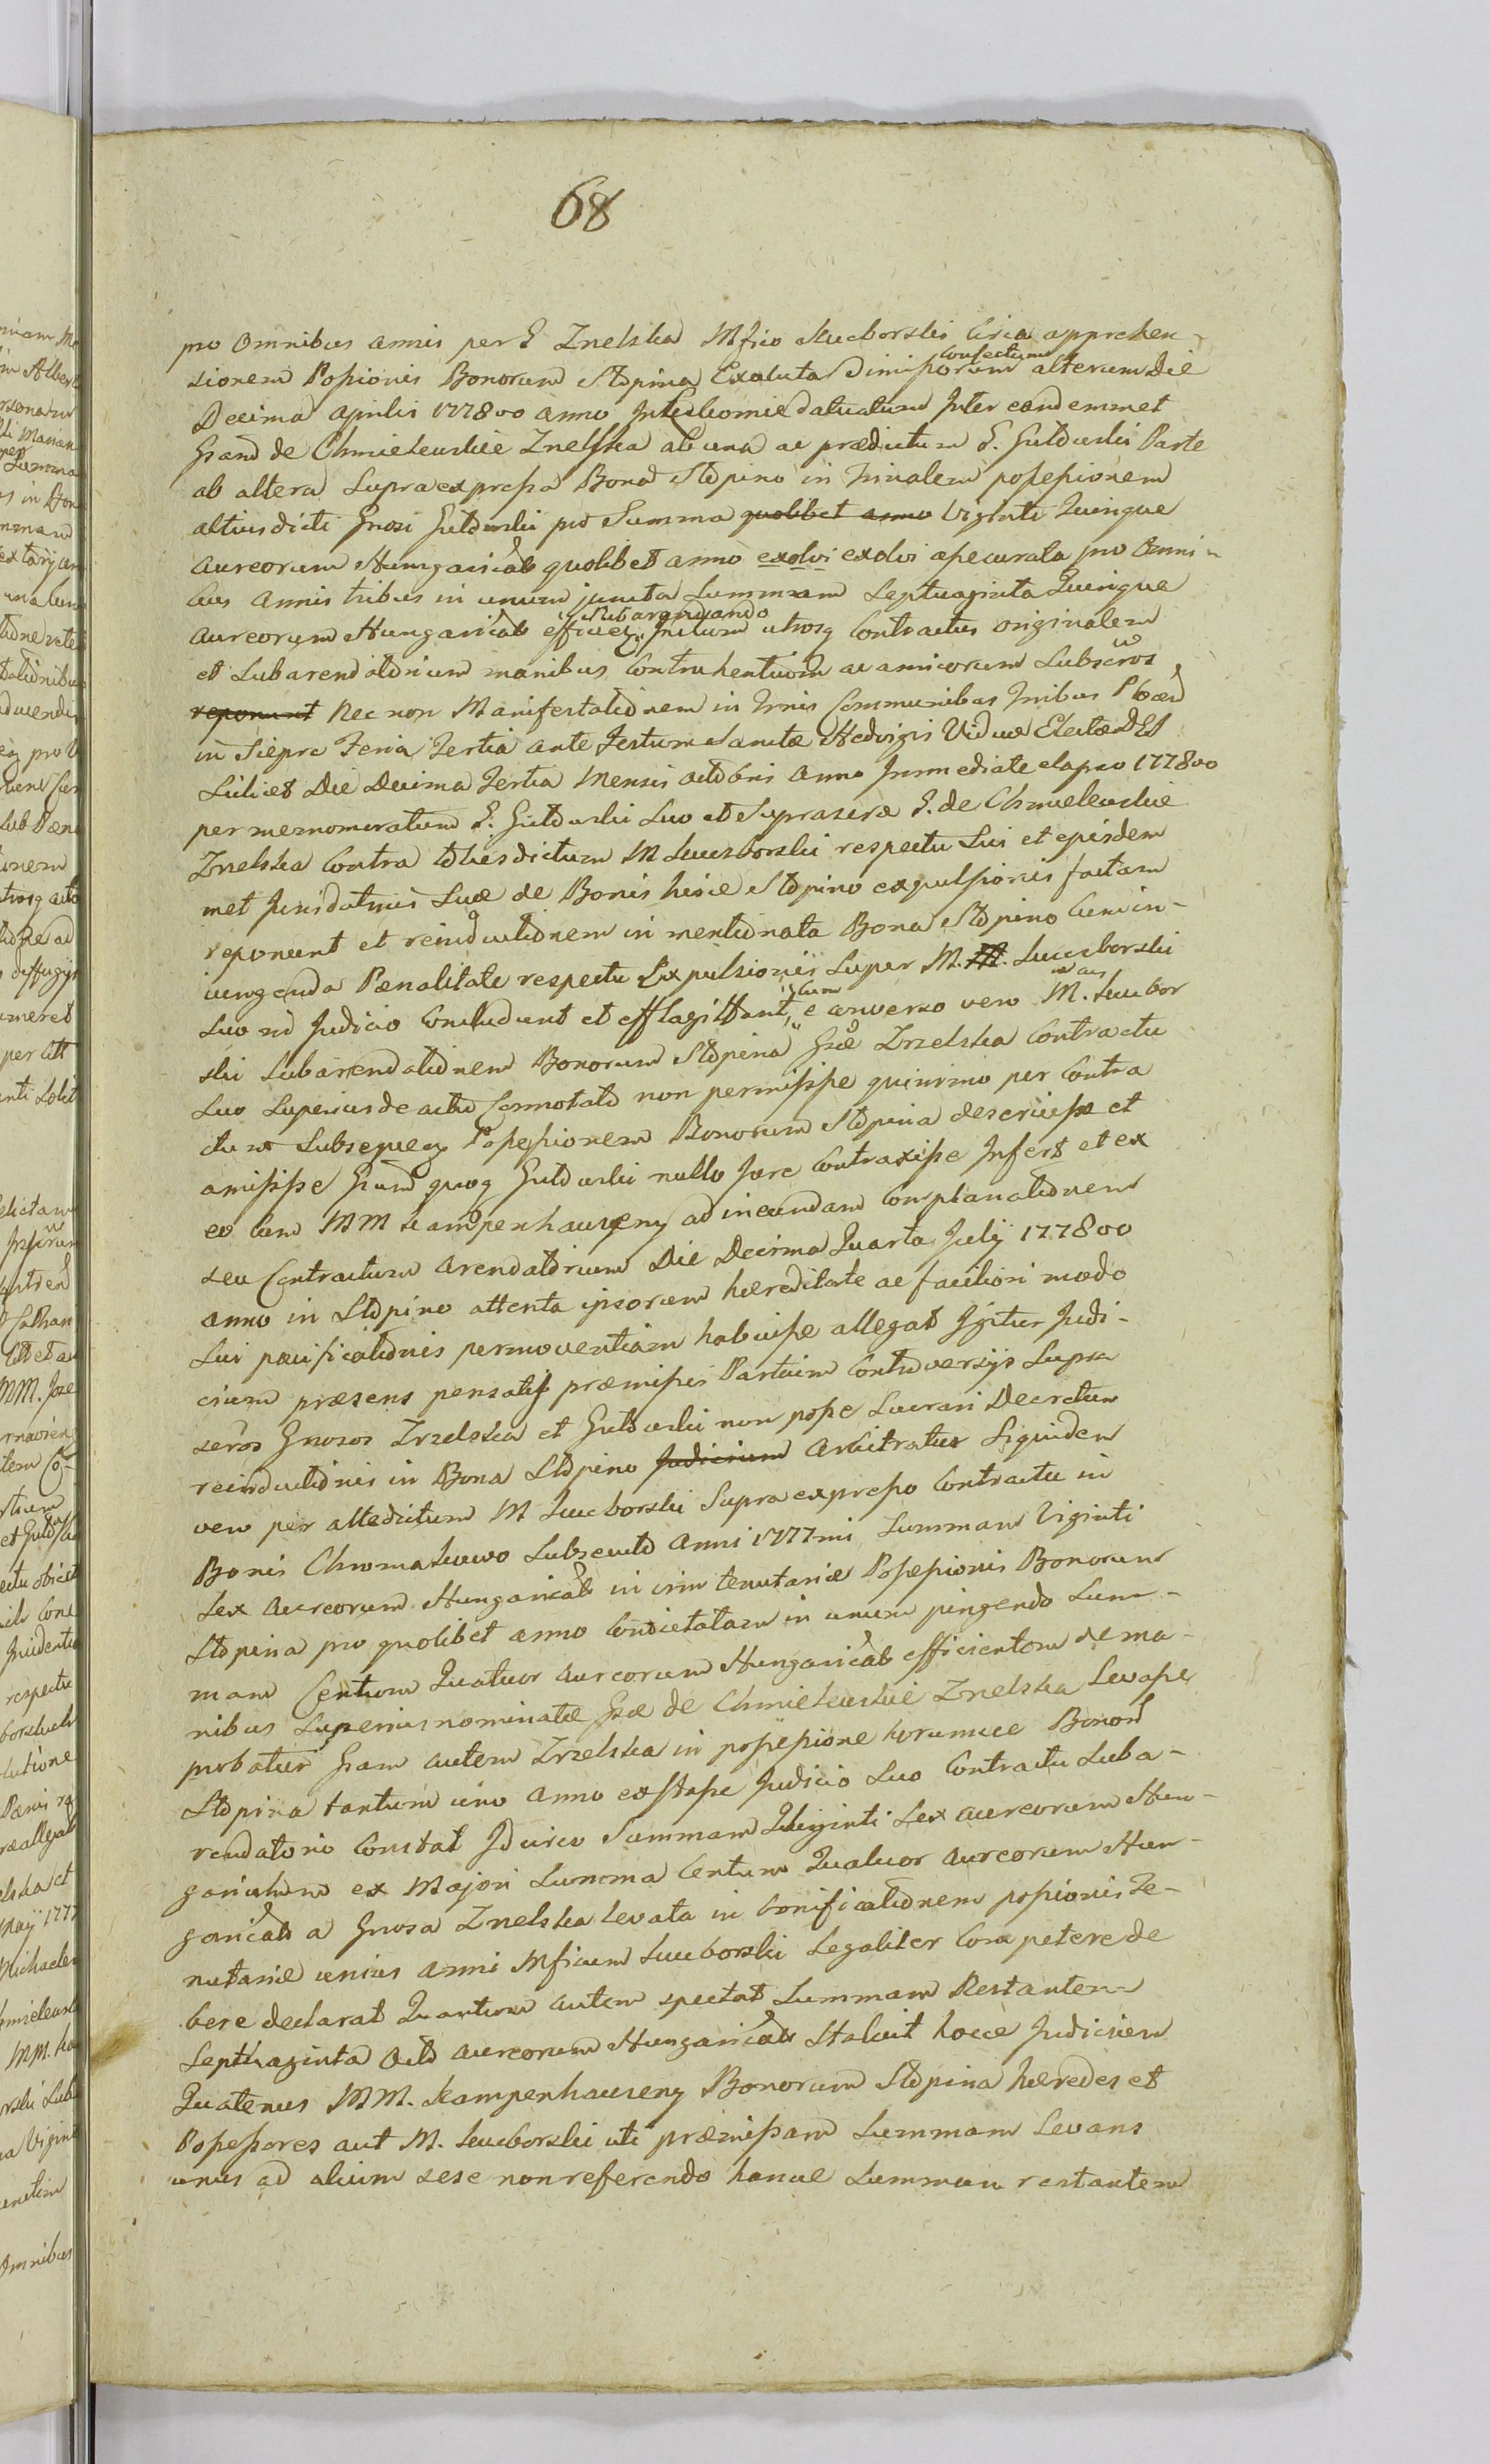 68
pro Omnibus annis per G Znelska Mfico Sucborski Circa apprehen-
sionem Possionis Bonorum Stopina Exoluta Dimissorum Confectum alterum Die
Decima Aprilis 177800 anno datuatum Inter eandemmet
Gsand de Chmielewskie Znelska ab una ac prædictum G. Gutowski Parte
ab altera Supra expressa Bona Stopino in trinalem possessionem
altius dicti Gnosi Gutowski pro Summa quolibet anno Viginti Quinque
Aureorum Hungaricab quolibet anno exolvi exolvi assecurata pro Omni-
bus Annis tribus in unum juncta Summam Septuaginta Quinque
Aureorum Hungaricab efficiez Subarendando Initum utrosq Contractus originalem
et Subarendatorium manibus Contrahentium ac amicorum Subscros
reponunt Nec non Manifestationem in Communibus
in Sieprc Feria Tertia ante Festum Sanctæ Hedvigis Viduæ Electæ
Scilicet Die Decima Tertia Mensis Octobris Anno Immediate elapso 177800
per memomeratum G. Gutowski Suo et Suprascræ G. de Chmielewskie
Znelska Contra toties dictum M Sucsborski respectu Sui et ejusdem
met Suæ de Bonis hisce Stopino expulsionis factam
reponunt et reinductionem in mentionata Bona Stopino Cum in-
iungenda Pænalitate respectu Expulsionis Super M. M. Sucsborski
Suo in Judicio Concludunt et efflagittant, e converso vero M. Sucbor
ski Subarendationem Bonorum Stopina Gsæ Zrzelska Contractu
Suo Superius de actu Connotato non permisisse quinimo per Contra
ctum Subsequez Possessionem Bonorum Stopina et
amisisse Gsum quoq Gutowski nullo Jure Contraxisse Infert et ex
eo cum MM Kampenhauzeny ad ineundam Complanationem
seu Contractum Arendatorium Die Decima Quarta July 177800
anno in Stopino attenta ipsorum hæreditate ac faciliori modo
Sui pacificationis permoventiam habuisse allegat Igitur Judi-
cium præsens pensatis præmissis Partium Controversijs Supra
scros Gnosos Zrzelska et Gutowski non posse Lucrari Decretum
reinductionis in Bona Stopino Judicium Arbitratur Siquidem
vero per attedictum M Sucborski Supra expresso Contractu in
Bonis Chromakowo Subsecuto Anni 1777mi Summam Viginti
Sex Aureorum Hungaricab in vim tenutariæ Possessionis Bonorum
Stopina pro quolibet anno Condictatam in unum pingendo Sum-
mam Centum Quatuor Aureorum Hungaricab efficientem de ma-
nibus Superius nominatæ Gsæ de Chmielewskie Znelska Levasse
probatur Gsam autem Zrzelska in possessione horumce Bonord
Stopina tantum uno Anno exstasse Judicio Suo Contractu Suba-
rendatorio Constat Idcirco Summam Viginti Sex Aureorum Hun-
garicalium ex Majori Summa Centum Quatuor Aureorum Hun-
garicab a Gnosa Znelska levata in bonificationem possionis Te-
nutariæ unius Anni Mficum Sucborski Legaliter Competere de
bere declarat Quantum autem spectat Summam Restantem
Septuaginta Octo Aureorum Hungaricab Statuit hocce Judicium
Quatenus MM. Kampenhauseny Bonorum Stopina hæredes et
Possessores aut M. Sucborski uti præmissam Summam Levans
unus ad alium sese non referendo hance Summam restantem